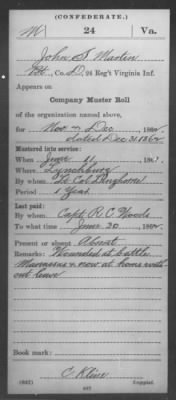 (CONFEDERATE.)
M 24 Va.
John S. Martin
Pvt, Co. D, 24 Reg't Virginia Inf.
Appears on
Company Muster Roll
of the organization named above,
for Nov & Dec, 1862.
dated Dec 31 1862
Mustered into service:
When June 11, 1861.
Where Lynchburg
By whom Lt Col Langhorne
Period 1 Year
Last paid:
By whom Capt R. C. Woods
To what time June 30, 1862.
Present or absent Absent
Remarks: Wounded at battle
Manassas & now at home with
out leave
Book mark:
C. Kline
(642) Copyist.